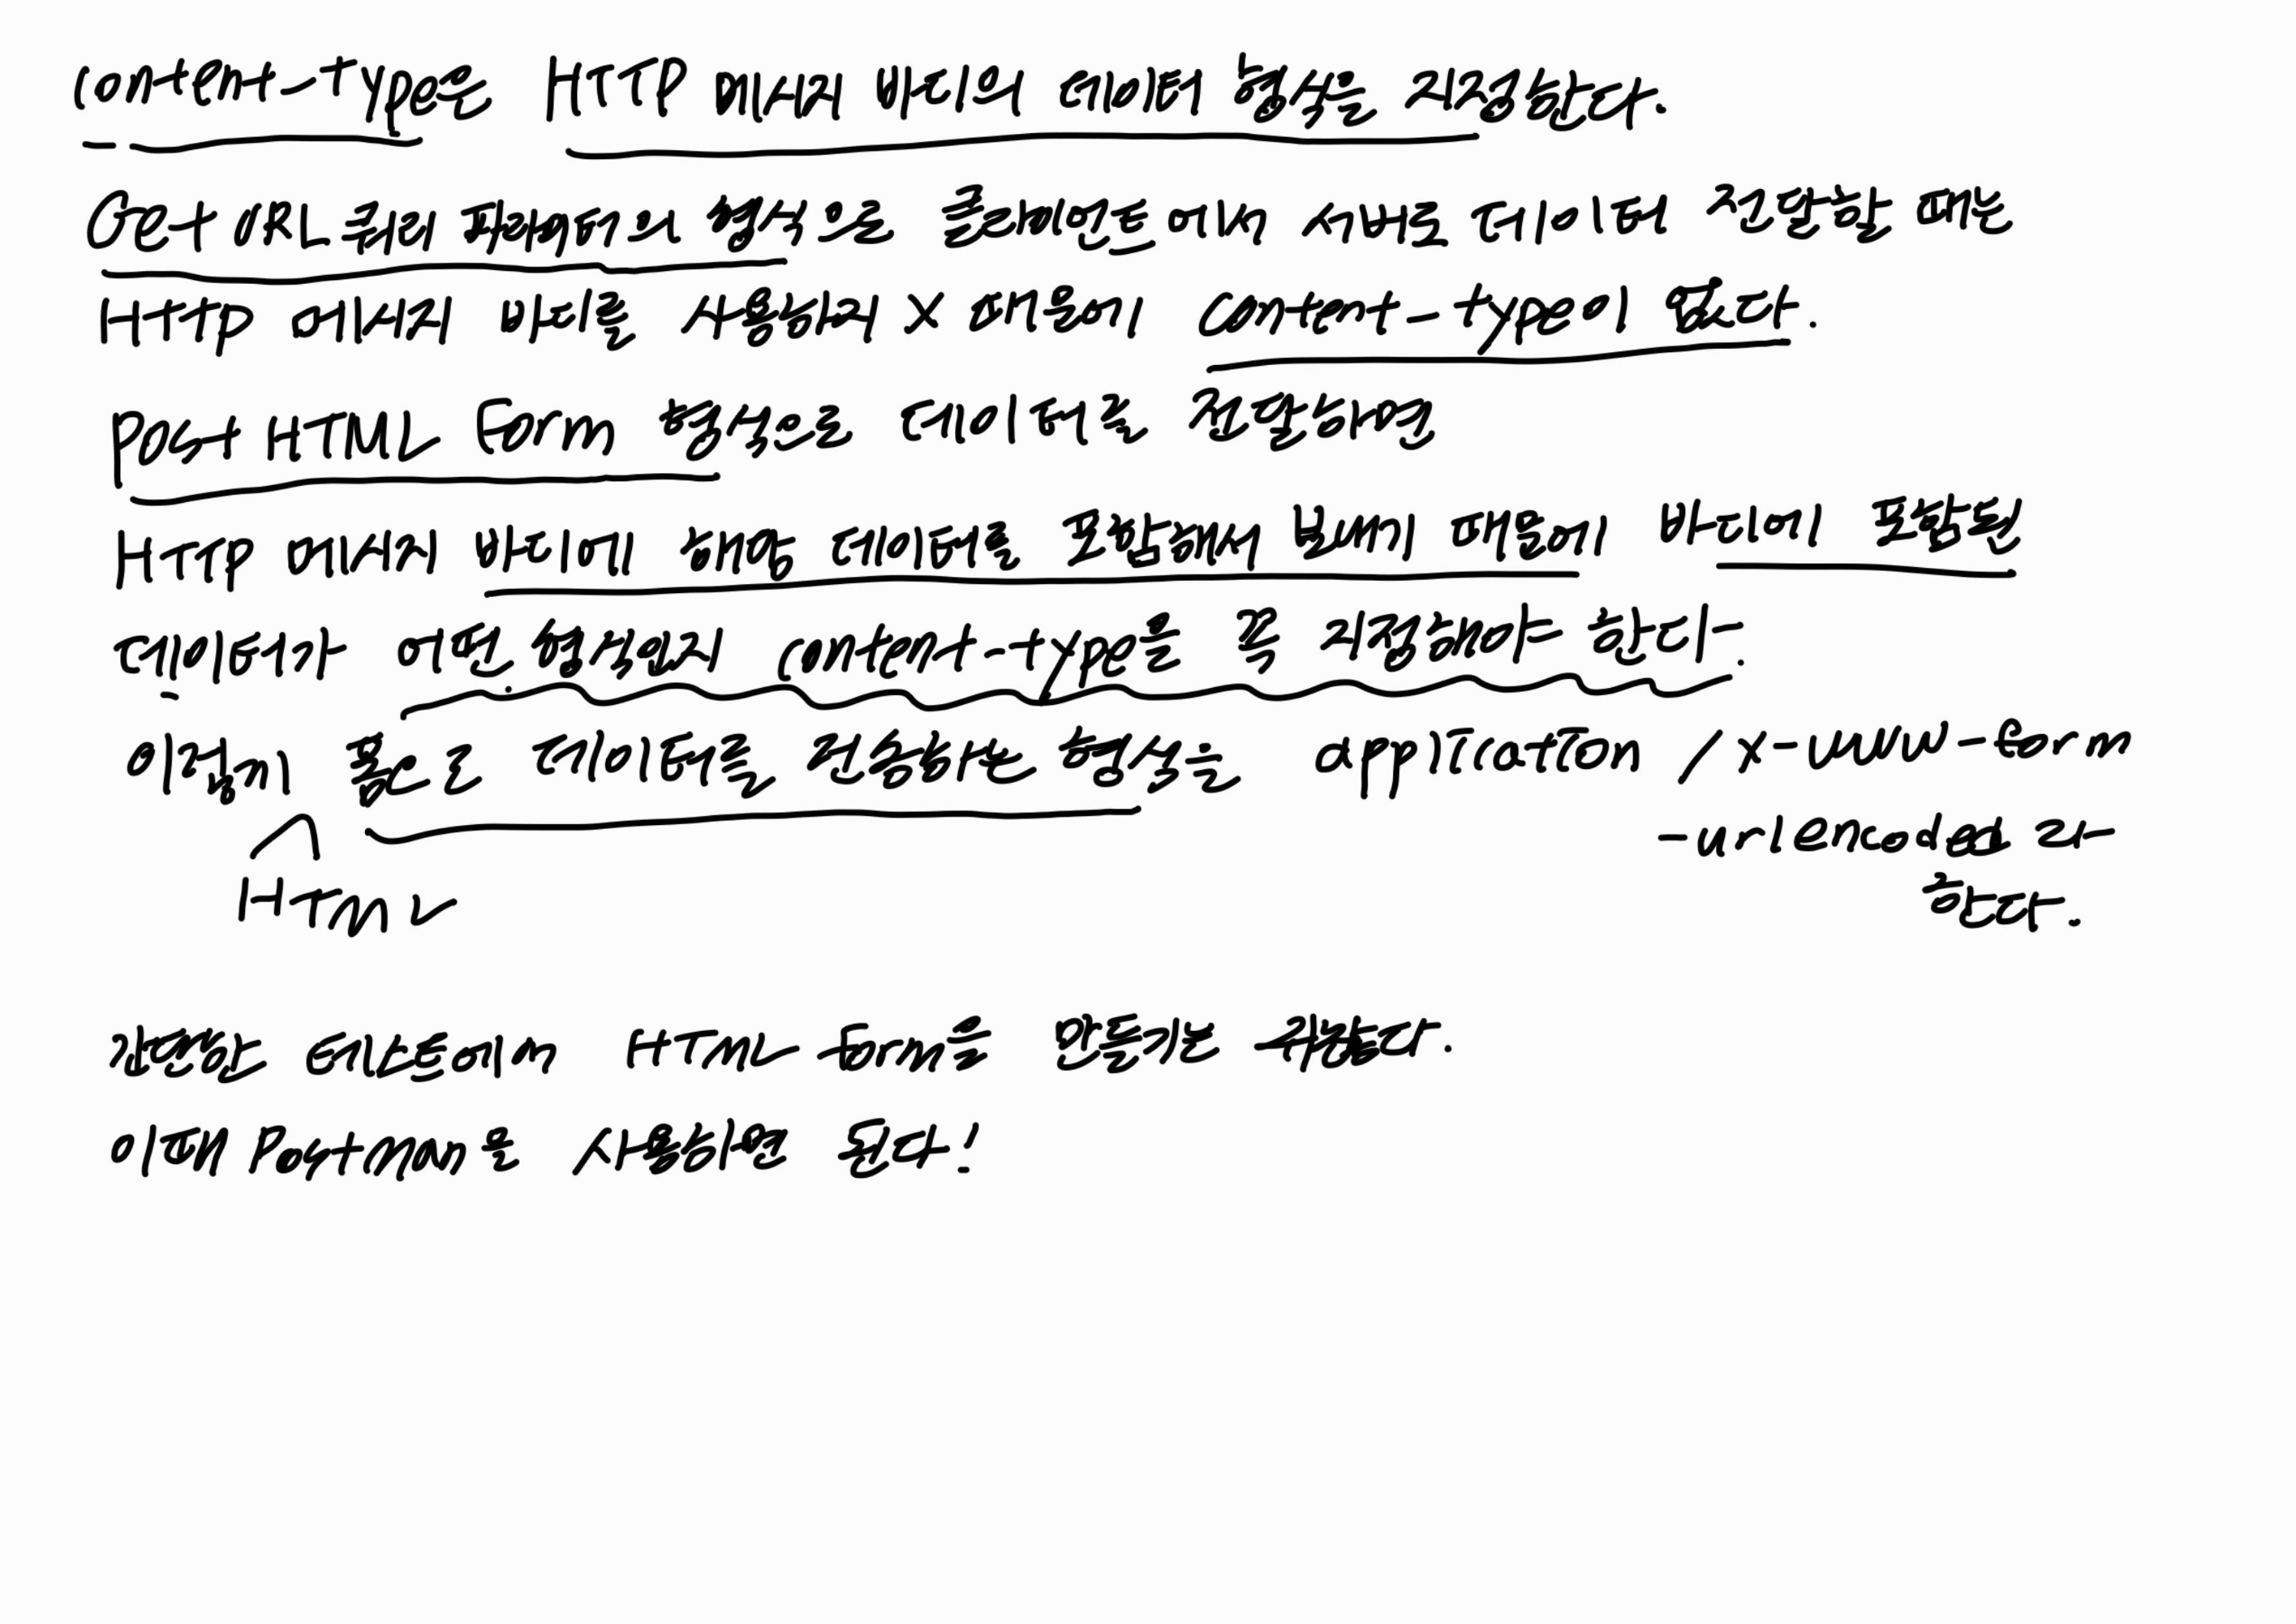 content-type은 HTTP 메시지 바디의 데이터 형식을 지정한다.
Get URL 쿼리 파라미터의 형식으로 클라이언트에서 서버로 데이터 전달할 때는
Http 메시지 바디를 사용하지 X 때문에 content-type이 없다.
post HTML Form 형식으로 데이터를 전달하면
HTTP 메시지 바디에 해당 데이터를 포함해서 보내기 때문에 바디에 포함된
데이터가 어떤 형식인지 content-type을 꼭 지정해야 한다.
이렇게 폼으로 데이터를 전송하는 형식을 application / x-www-form
-urlencoded 라
HTML
한다.
간단한 테스트에서 HTML form을 만들기는 귀찮다.
이때 Postman을 사용하면 된다!